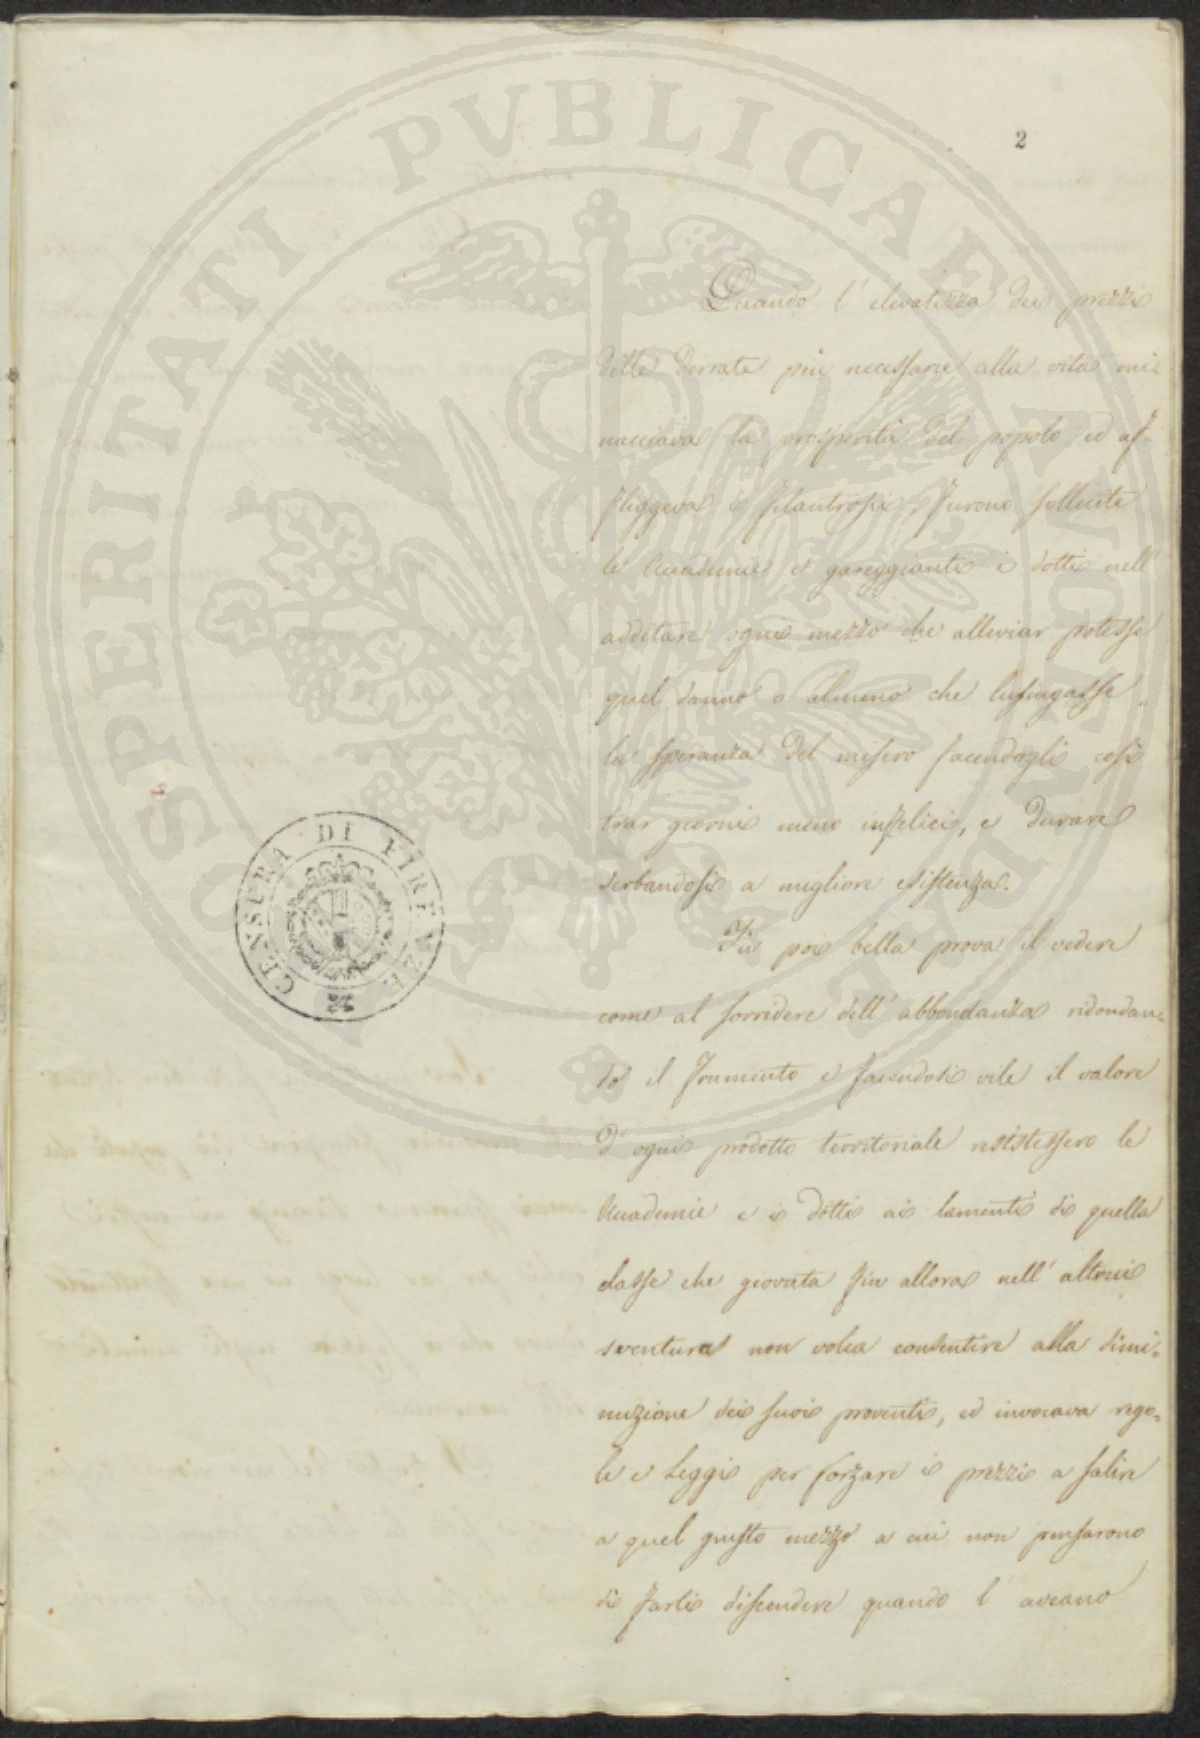 PROSPERITATI PVBLICAE AVGENDAE
2
Quando l' elevatezza dei prezzi
delle derrate più necessarie alla vita mi=
nacciava la prosperità del popolo ed af-
fliggeva i filantropi, furono sollecite
le Accademie e gareggianti i dotti nell'
additare ogni mezzo che alleviar potesse
quel danno o almeno che lusingasse
la speranza del misero facendogli così
trar giorni meno infelici, e durare
serbandosi a migliore esistenza.
Fu poi bella prova il vedere
come al sorridere dell' abbondanza ridondan=
do il frumento e facendosi vile il valore
d' ogni prodotto territoriale resistessero le
Accademie e i dotti ai lamenti di quella
classe che giovata fin allora nell' altrui
sventura non volea consentire alla dimi=
nuzione dei suoi proventi, ed invocava rego=
le e leggi per forzare i prezzi a salire
a quel giusto mezzo a cui non pensarono
di farli discendere quando l' aveano
CENSURA DI FIRENZE